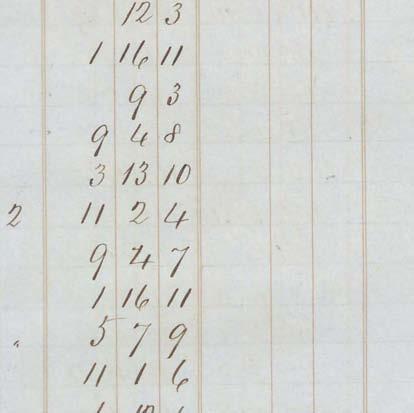 12 3
1 16 11
9 3
9 4 8
3 13 10
2 11 2 4
9 4 7
1 16 11
" 5 7 9
11 1 6